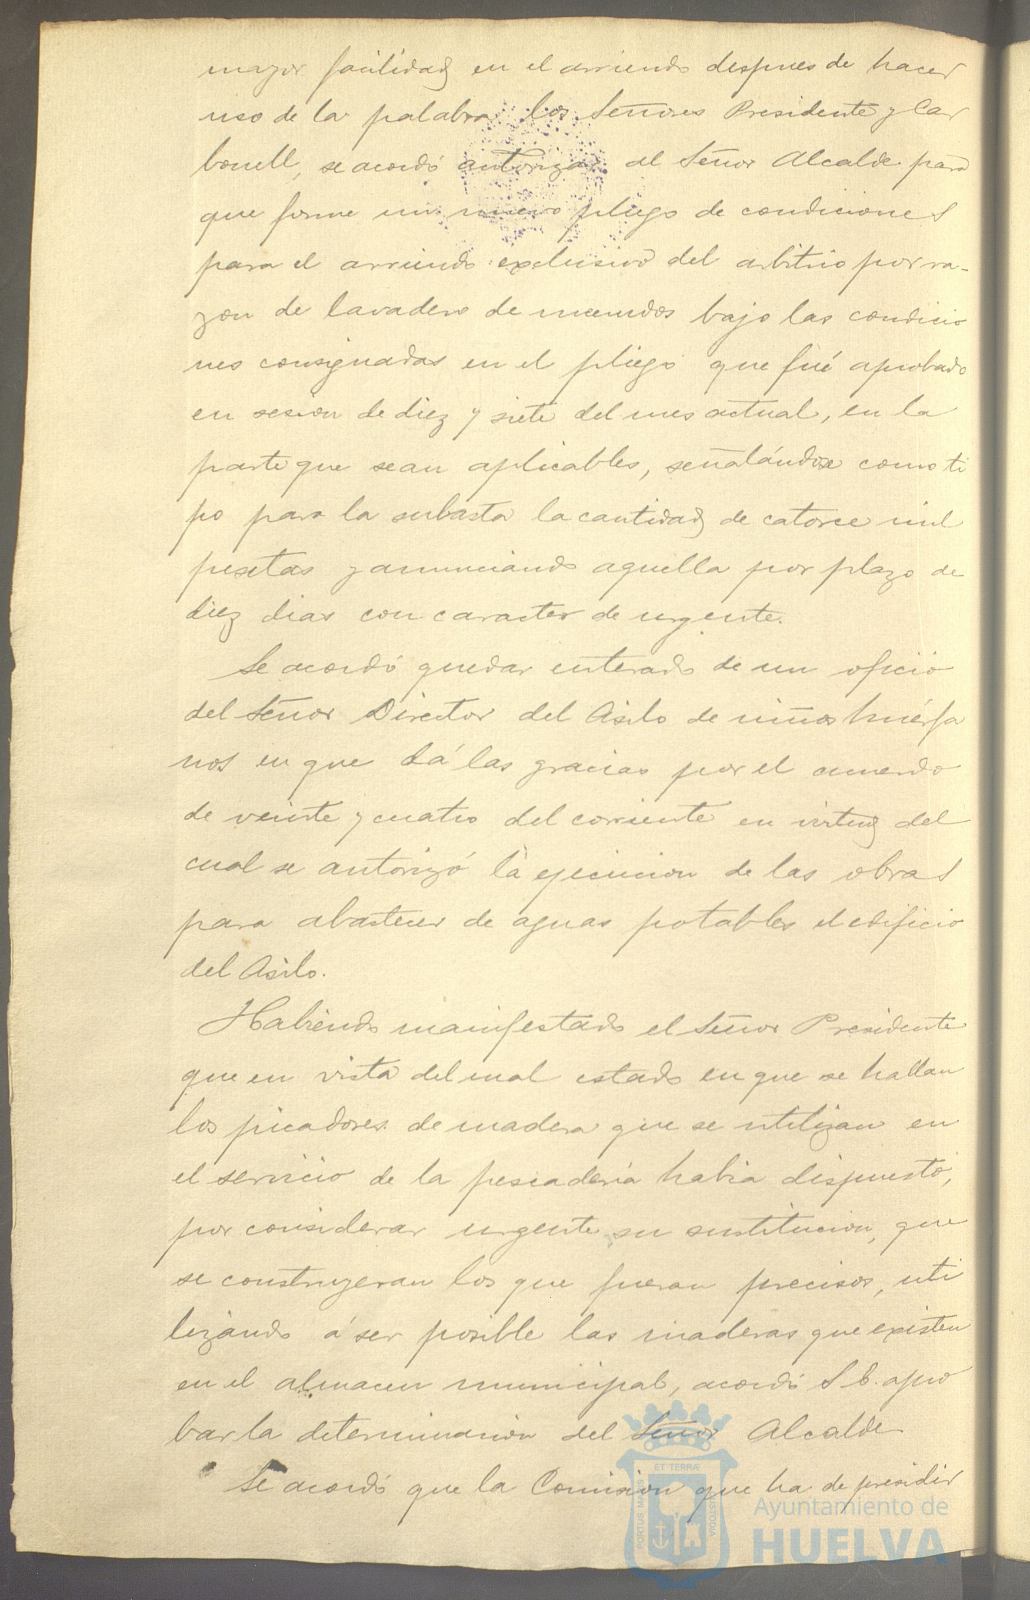 mayor facilidad en el arriendo despues de hacer
uso de la palabra los Señores Presidente y Car
bonell, se acordó autorizar al Señor Alcalde para
que forme un nuevo pliego de condiciones
para el arriendo exclusivo del arbitrio por ra-
zon de lavadero de menudos bajo las condicio
nes consignadas en el pliego que fué aprobado
en sesion de diez y siete del mes actual, en la
parte que sean aplicables, señalándose como ti
po para la subasta la cantidad de catorce mil
pesetas y anunciando aquella por plazo de
diez dias con caracter de urgente.
Se acordó quedar enterado de un oficio
del Señor Director del Asilo de niños huérfa
nos en que dá las gracias por el acuerdo
de veinte y cuatro del corriente en virtud del
cual se autorizó la ejecucion de las obras
para abastecer de aguas potables el edificio
del Asilo.
Habiendo manifestado el Señor Presidente
que en vista del mal estado en que se hallan
los picadores de madera que se utilizan en
el servicio de la pescaderia habia dispuesto,
por considerar urgente su sustitucion, que
se construyeran los que fueran precisos, uti
lizando á ser posible las maderas que existen
en el almacen municipal, acordó S. E. apro
bar la determinacion del Señor Alcalde
Se acordó que la Comision que ha de presidir
PORTUS MARIS ET TERRÆ CUSTODIA
Ayuntamiento de
HUELVA